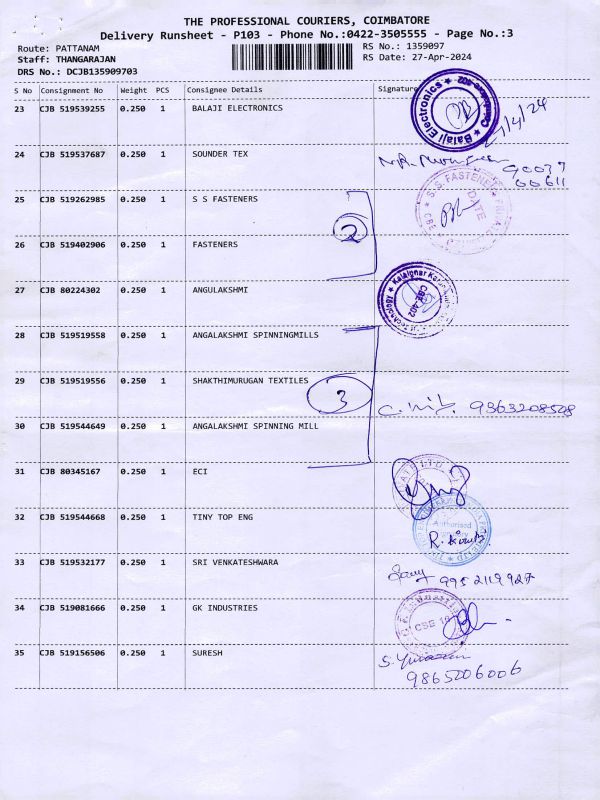 THE PROFESSIONAL COURIERS, COIMBATORE
Delivery Runsheet - P103 - Phone No.:0422-3505555 - Page No.:3
Route: PATTANAM
RS No.: 1359097
Staff: THANGARAJAN
RS Date: 27-Apr-2024
DRS No.: DCJB135909703
S No Consignment No Weight PCS Consignee Details Signature
23 CJB 519539255 0.250 1 BALAJI ELECTRONICS
Balaji Electronics
24 CJB 519537687 0.250 1 SOUNDER TEX
25 CJB 519262985 0.250 1 S S FASTENERS
S.S. FASTENER
DATE
CBE
2
26 CJB 519402906 0.250 1 FASTENERS
27 CJB 80224302 0.250 1 ANGULAKSHMI
CBE 402
28 CJB 519519558 0.250 1 ANGALAKSHMI SPINNINGMILLS
29 CJB 519519556 0.250 1 SHAKTHIMURUGAN TEXTILES
3
9363208508
30 CJB 519544649 0.250 1 ANGALAKSHMI SPINNING MILL
31 CJB 80345167 0.250 1 ECI
32 CJB 519544668 0.250 1 TINY TOP ENG
Authorised
33 CJB 519532177 0.250 1 SRI VENKATESHWARA
9952119927
34 CJB 519081666 0.250 1 GK INDUSTRIES
35 CJB 519156506 0.250 1 SURESH
9865206006